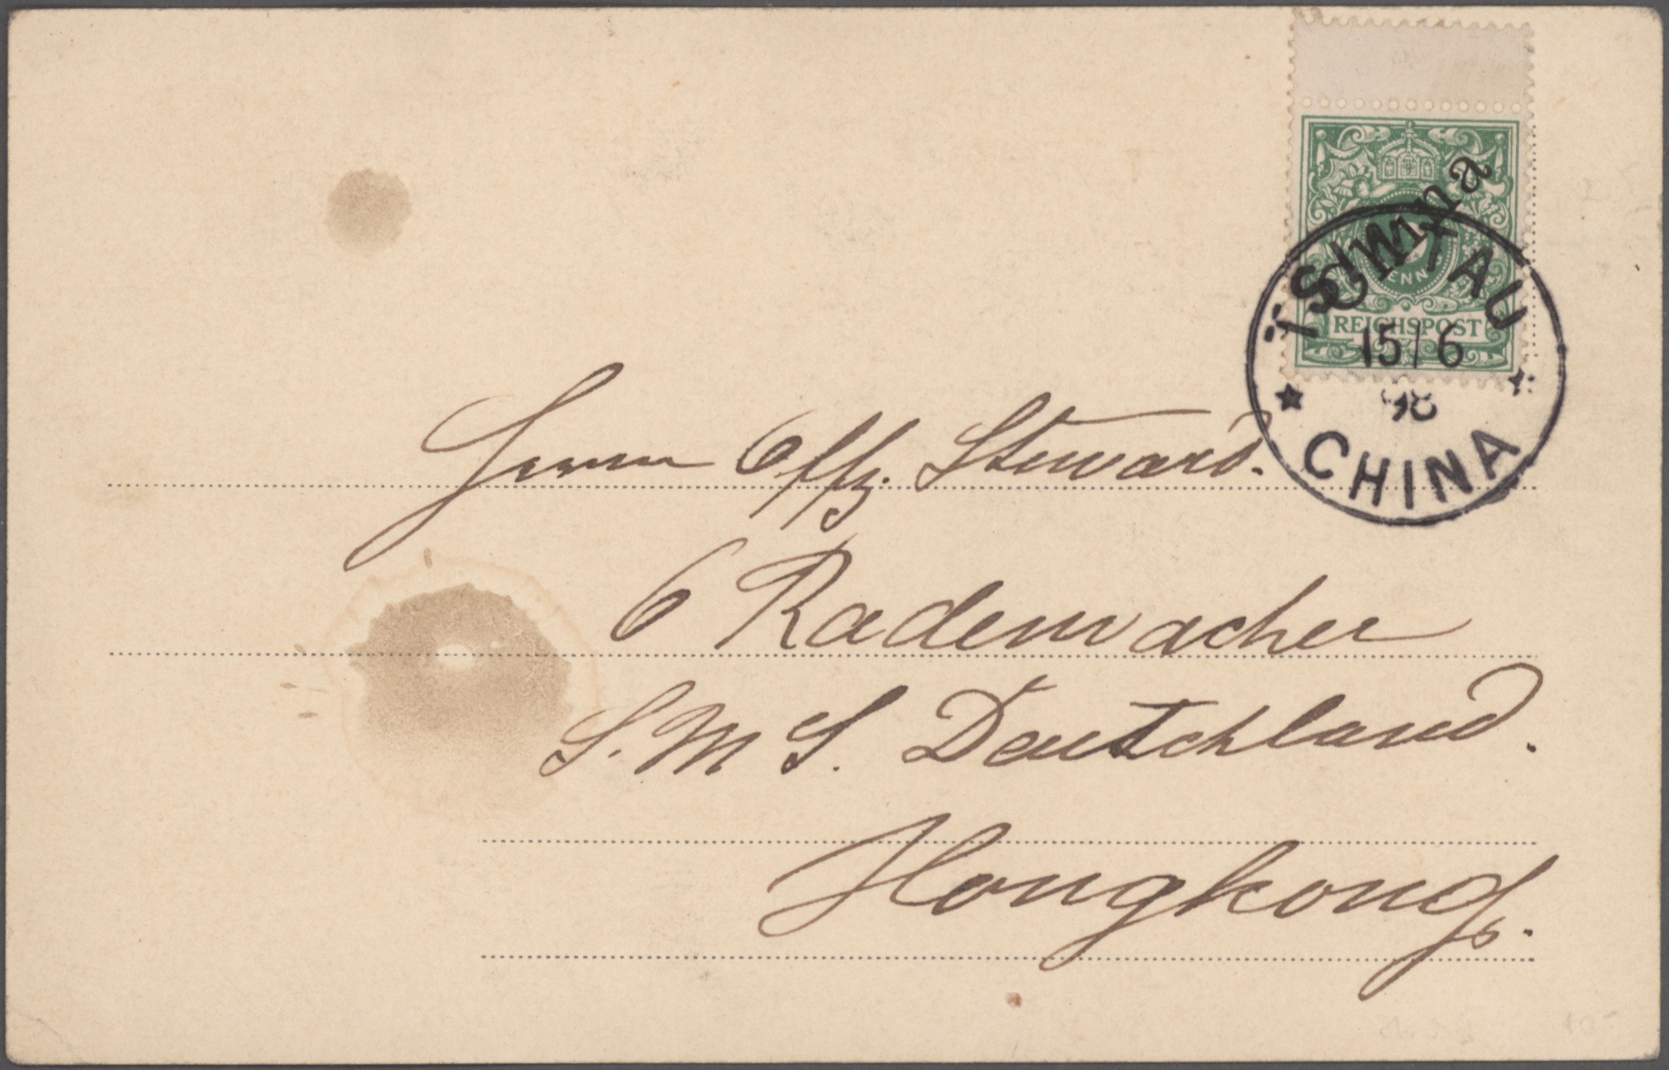 China
PFENNIG
REICHSPOST
TSINTAU
15/6
98
CHINA
Herrn Offz. Steward.
G Rademacher
S. M. S. Deutschland.
Hongkong.